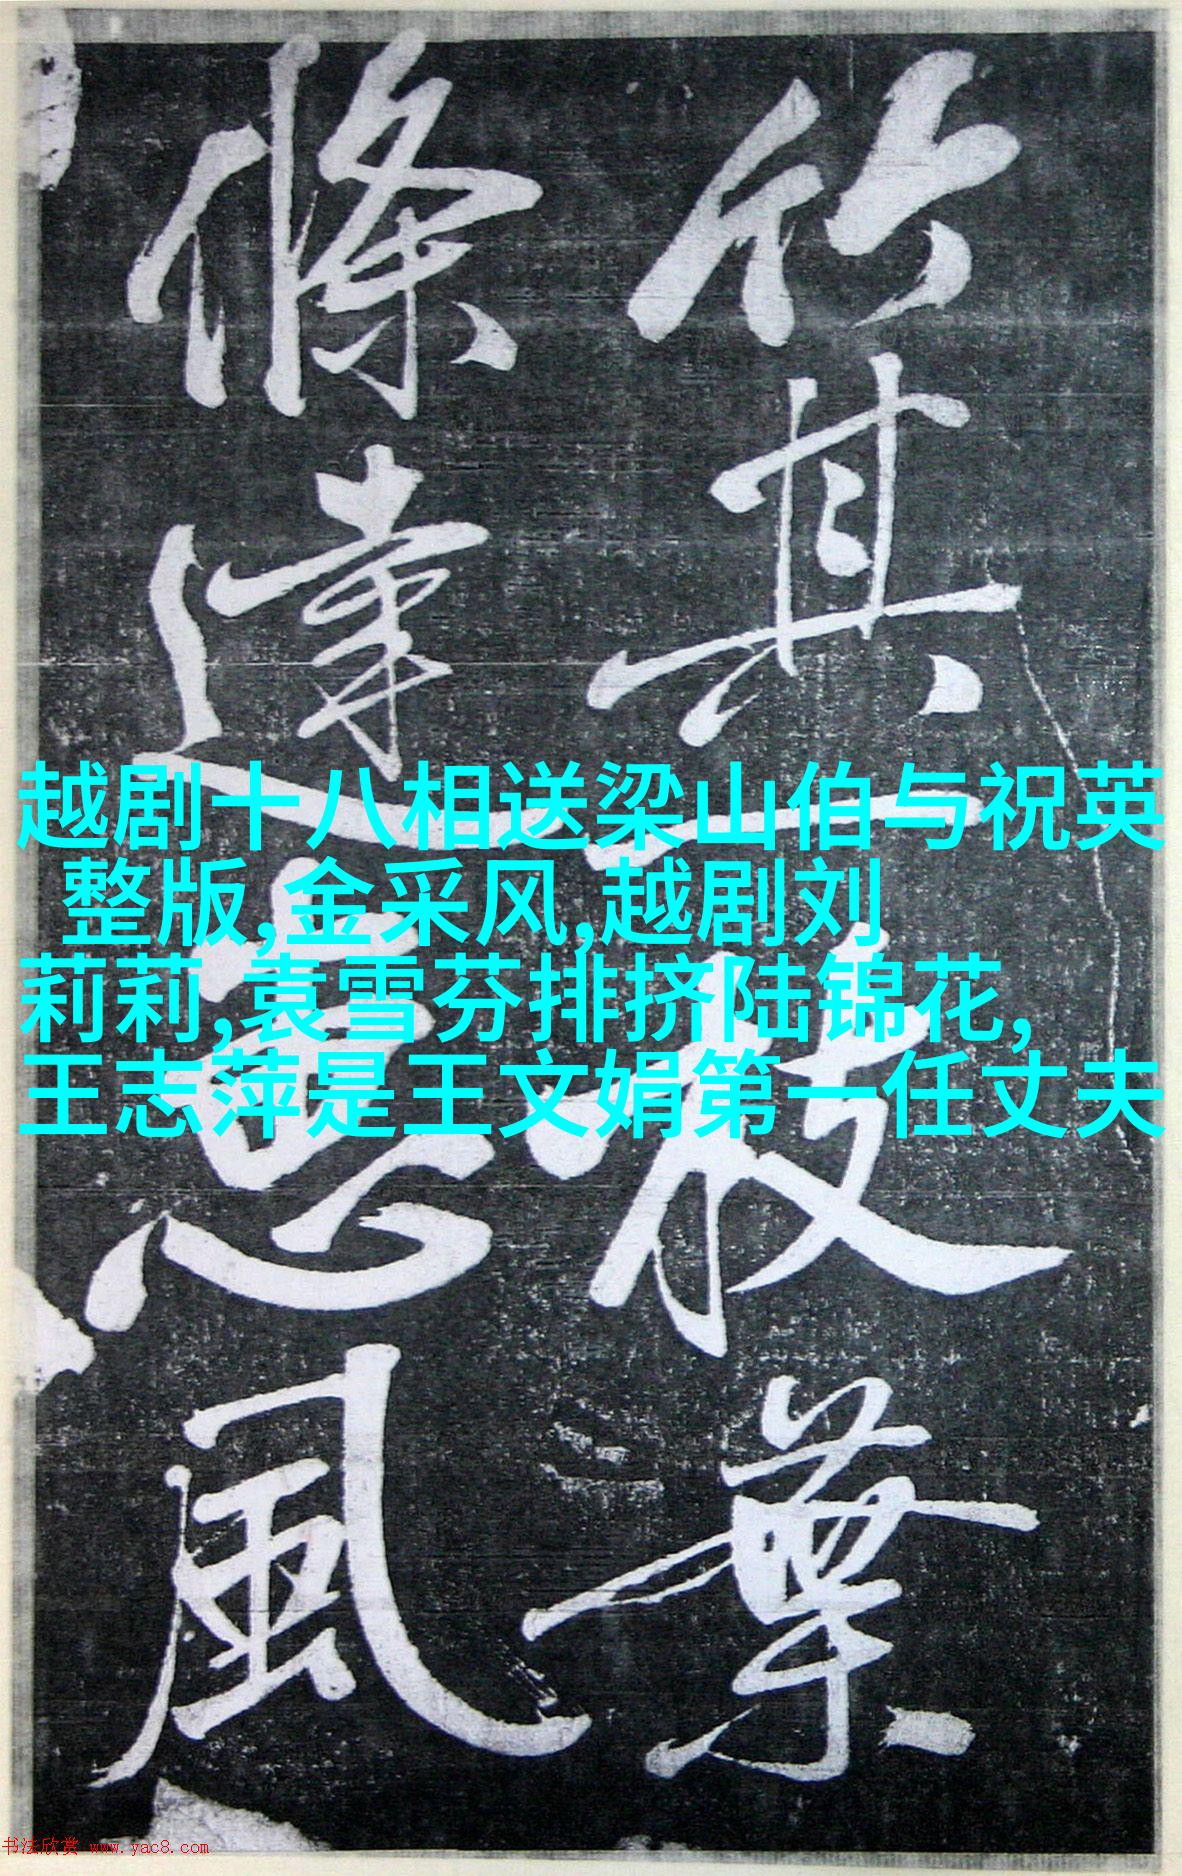 竹其枝葉
條達惠風
越剧十八相送梁山伯与祝英
整版,金采风,越剧刘
莉莉,袁雪芬排挤陆锦花,
王志萍是王文娟第一任丈夫
书法欣赏 www.yac8.com